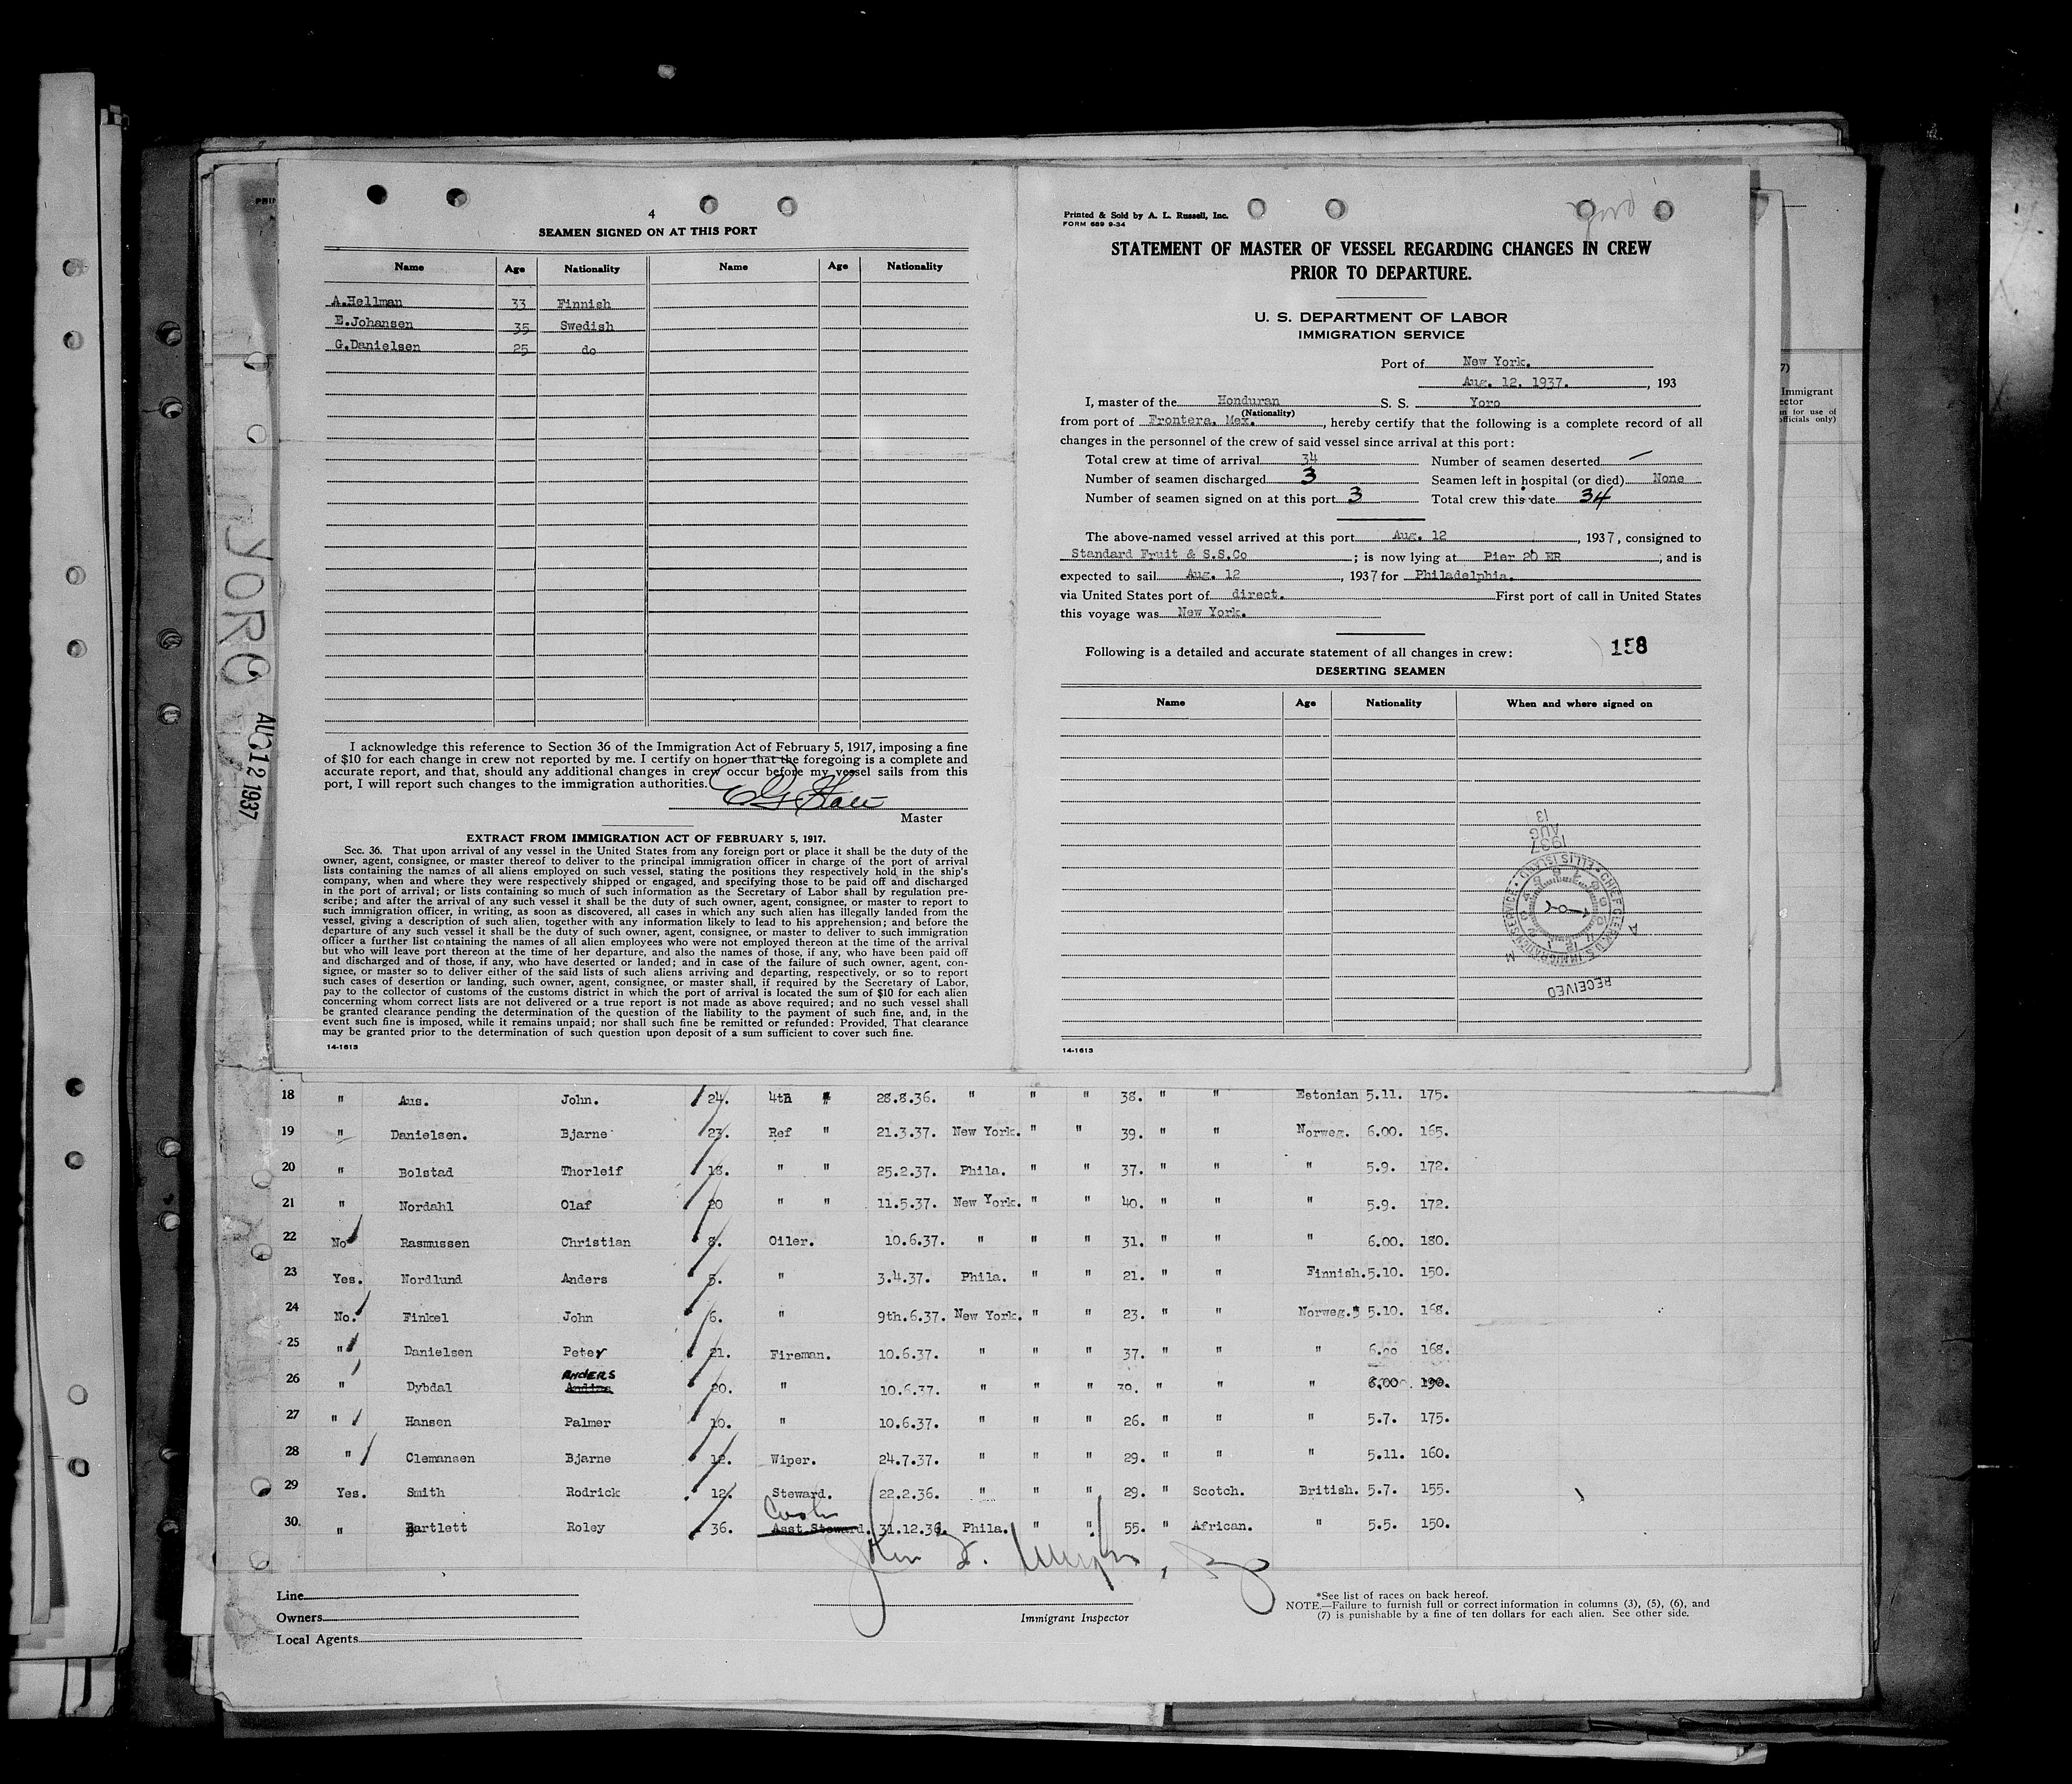 4
SEAMEN SIGNED ON AT THIS PORT
Name Age Nationality Name Age Nationality
A.Hellman 33 Finnish
E.Johansen 35 Swedish
G.Danielsen 25 do
I acknowledge this reference to Section 36 of the Immigration Act of February 5, 1917, imposing a fine
of $10 for each change in crew not reported by me. I certify on honor that the foregoing is a complete and
accurate report, and that, should any additional changes in crew occur before my vessel sails from this
port, I will report such changes to the immigration authorities.
Master
EXTRACT FROM IMMIGRATION ACT OF FEBRUARY 5, 1917.
Sec. 36. That upon arrival of any vessel in the United States from any foreign port or place it shall be the duty of the
owner, agent, consignee, or master thereof to deliver to the principal immigration officer in charge of the port of arrival
lists containing the names of all aliens employed on such vessel, stating the positions they respectively hold in the ship's
company, when and where they were respectively shipped or engaged, and specifying those to be paid off and discharged
in the port of arrival; or lists containing so much of such information as the Secretary of Labor shall by regulation pre-
scribe; and after the arrival of any such vessel it shall be the duty of such owner, agent, consignee, or master to report to
such immigration officer, in writing, as soon as discovered, all cases in which any such alien has illegally landed from the
vessel, giving a description of such alien, together with any information likely to lead to his apprehension; and before the
departure of any such vessel it shall be the duty of such owner, agent, consignee, or master to deliver to such immigration
officer a further list containing the names of all alien employees who were not employed thereon at the time of the arrival
but who will leave port thereon at the time of her departure, and also the names of those, if any, who have been paid off
and discharged and of those, if any, who have deserted or landed; and in case of the failure of such owner, agent, con-
signee, or master so to deliver either of the said lists of such aliens arriving and departing, respectively, or so to report
such cases of desertion or landing, such owner, agent, consignee, or master shall, if required by the Secretary of Labor,
pay to the collector of customs of the customs district in which the port of arrival is located the sum of $10 for each alien
concerning whom correct lists are not delivered or a true report is not made as above required; and no such vessel shall
be granted clearance pending the determination of the question of the liability to the payment of such fine, and, in the
event such fine is imposed, while it remains unpaid; nor shall such fine be remitted or refunded: Provided, That clearance
may be granted prior to the determination of such question upon deposit of a sum sufficient to cover such fine.
14-1613
Printed & Sold by A. L. Russell, Inc.
FORM 689 9-34
STATEMENT OF MASTER OF VESSEL REGARDING CHANGES IN CREW
PRIOR TO DEPARTURE.
U. S. DEPARTMENT OF LABOR
IMMIGRATION SERVICE
Port of New York.
Aug. 12, 1937. , 193
I, master of the Honduran S. S. Yoro
(Nationality)
from port of Frontera, Mex. , hereby certify that the following is a complete record of all
changes in the personnel of the crew of said vessel since arrival at this port:
Total crew at time of arrival 34 Number of seamen deserted —
Number of seamen discharged 3 Seamen left in hospital (or died) None
Number of seamen signed on at this port 3 Total crew this date 34
The above-named vessel arrived at this port Aug. 12 , 1937, consigned to
Standard Fruit & S.S.Co ; is now lying at Pier 20 ER ; and is
expected to sail Aug. 12 , 1937 for Philadelphia.
via United States port of direct. First port of call in United States
this voyage was New York.
Following is a detailed and accurate statement of all changes in crew: 158
DESERTING SEAMEN
Name Age Nationality When and where signed on
13
AUG
1937
CHIEF CLERK U.S. IMMIGRATION SERVICE ELLIS ISLAND
RECEIVED
14-1613
YORO
AUG 12 1937
Immigrant
18 " Aus. John. 24. 4th " 28.8.36. " " " 38. " " Estonian 5.11. 175.
19 " Danielsen. Bjarne 23. Ref " 21.3.37. New York. " " 39. " " Norweg. 6.00. 165.
20 " Bolstad Thorleif 18. " " 25.2.37. Phila. " " 37. " " " 5.9. 172.
21 " Nordahl Olaf 20 " " 11.5.37. New York. " " 40. " " " 5.9. 172.
22 No Rasmussen Christian 8. Oiler. 10.6.37. " " " 31. " " " 6.00. 180.
23 Yes. Nordlund Anders 5. " 3.4.37. Phila. " " 21. " " Finnish. 5.10. 150.
24 No. Finkel John 6. " 9th.6.37. New York. " " 23. " " Norweg. 5.10. 168.
25 " Danielsen Peter 21. Fireman. 10.6.37. " " " 37. " " " 6.00 168.
26 " Dybdal ANDERS 20. " 10.6.37. " " " 39. " " " 6.00. 190.
27 " Hansen Palmer 10. " 10.6.37. " " " 26. " " " 5.7. 175.
28 " Clemansen Bjarne 12. Wiper. 24.7.37. " " " 29. " " " 5.11. 160.
29 Yes. Smith Rodrick 12. Steward. 22.2.36. " " " 29. " Scotch. British. 5.7. 155.
30. " Bartlett Roley 36. Asst.Steward. 31.12.36. Phila. " " 55. " African. " 5.5. 150.
Line
Owners
Local Agents
Immigrant Inspector
*See list of races on back hereof.
NOTE.—Failure to furnish full or correct information in columns (3), (5), (6), and
(7) is punishable by a fine of ten dollars for each alien. See other side.